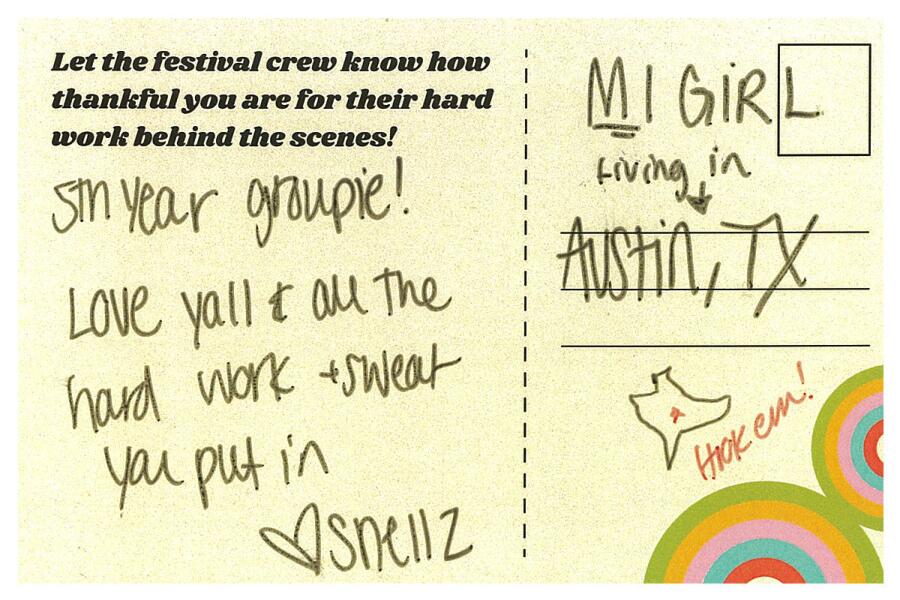 Let the festival crew know how
thankful you are for their hard
work behind the scenes!
5th year groupie!
Love yall & all the
hard work + sweat
you put in
♡ Snellz
MI GIRL
Living in
Austin, TX
Hook em!